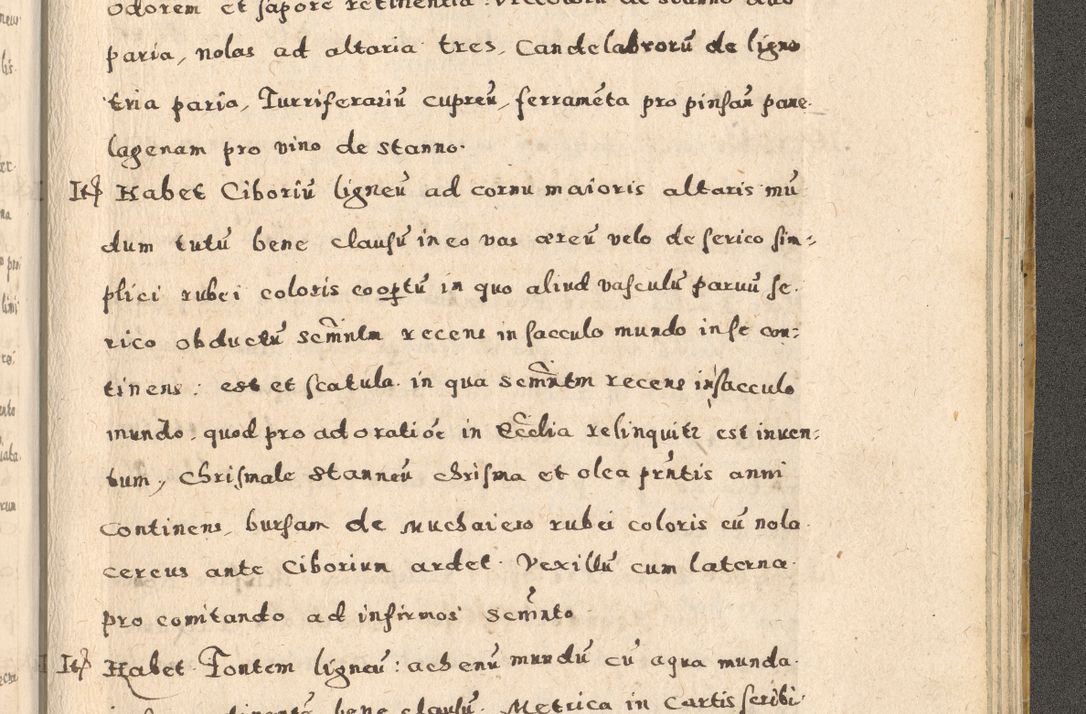 odorem et sapore retinentia. Urceolorū de stanno duo
paria, nolas ad altaria tres, Candelabrorū de ligno
tria paria, Turriferariū cupreū, ferramēta pro pinsañ pane.
lagenam pro vino de stanno.
Itꝫ Habet Ciboriū ligneū ad cornu maioris altaris mū
dum tutū bene clausū in eo vas æreū velo de serico sim-
plici rubei coloris cooptū in quo aliud vasculū paruū se.
rico obductū scm̃ntm recens in sacculo mundo in se con-
tinens: est et scatula. in qua scm̃ntm recens in sacculo
mundo. quod pro adoratiõe in Eccĩia relinquitr est inuen-
tum, Chrismale stanneū chrisma et olea pr̃ntis anni
continens, bursam de muchaiero rubei coloris cū nola
cereus ante Ciborium ardet. Vexillū cum laterna.
pro comitando ad infirmos scm̃nto
Itꝫ Habet Fontem ligneū: achenū mundū cū aqua munda.
bene clausū. Metrica in Cartis scribi